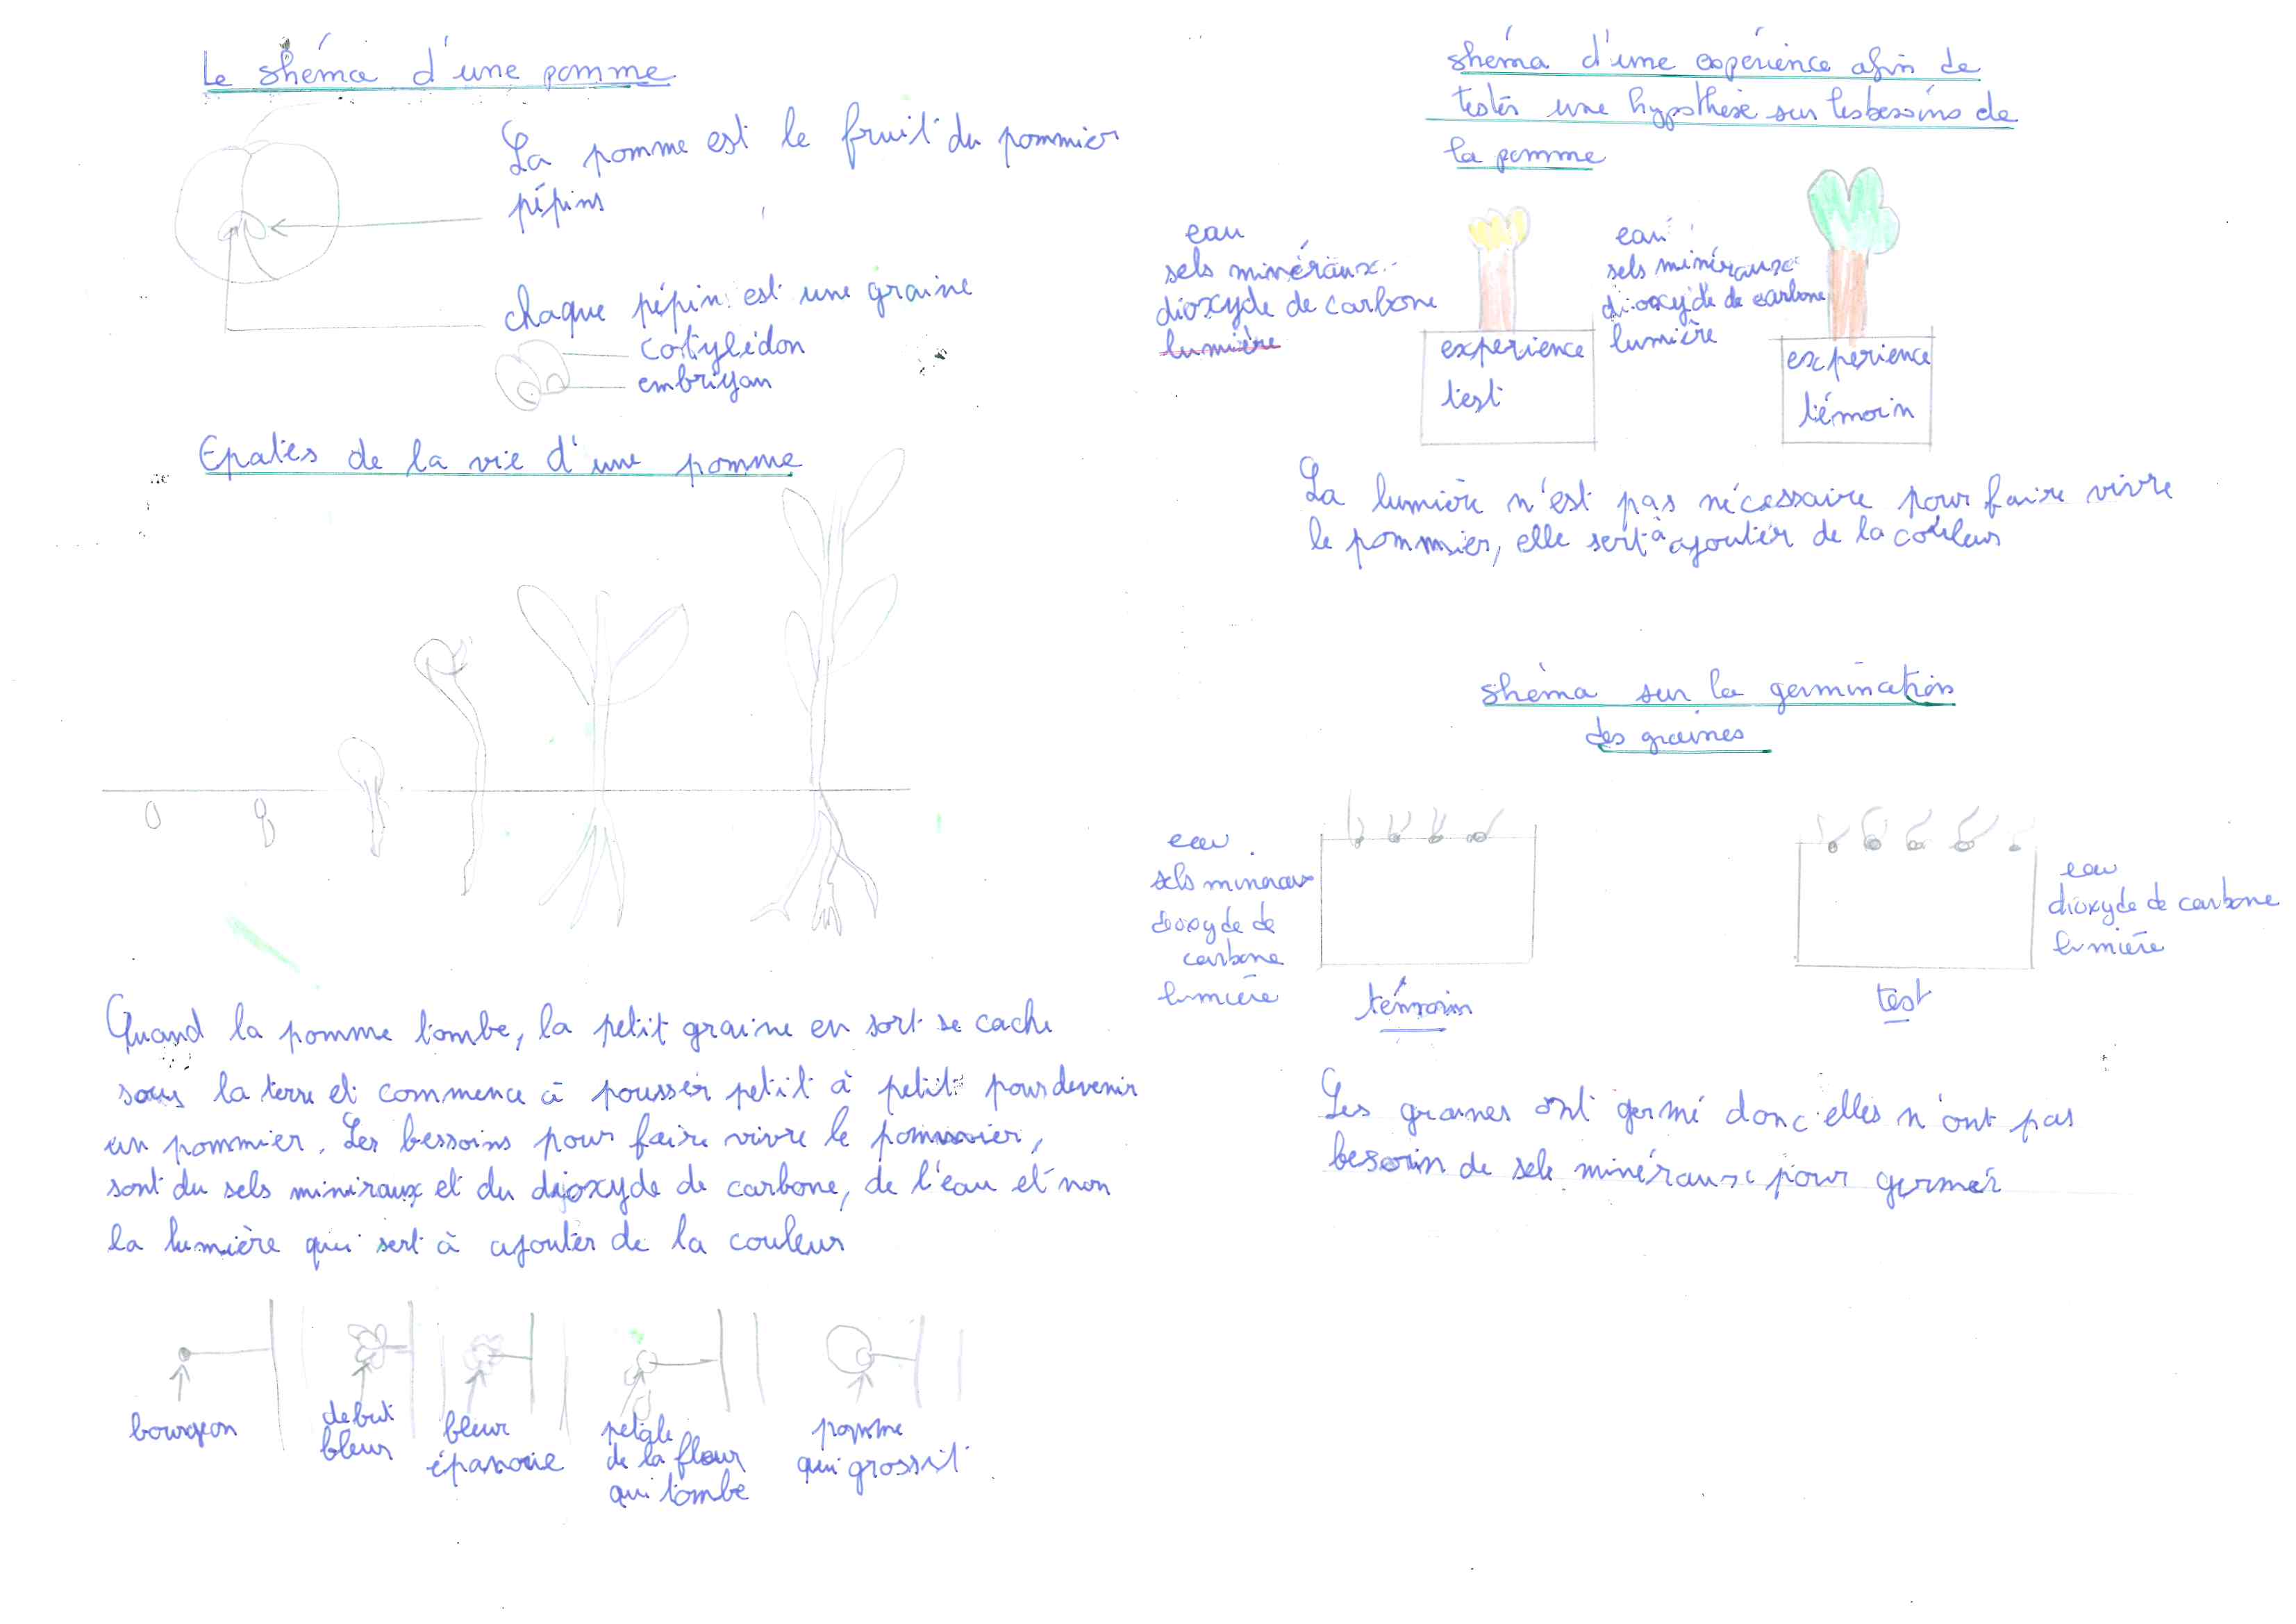 Le shéma d'une pomme
La pomme est le fruit du pommier
pépins
chaque pépin est une graine
cotylédon
embriyon
Epates de la vie d'une pomme
Quand la pomme tombe, la petit graine en sort se cache
sous la terre et commence à pousser petit à petit pour devenir
un pommier. Les bessoins pour faire vivre le pommier,
sont du sels minéraux et du dioxyde de carbone, de l'eau et non
la lumière qui sert à ajouter de la couleur
bourgeon
debut
bleur
bleur
épanouie
petale
de la fleur
qui tombe
pomme
qui grossit
shéma d'une expérience afin de
tester une hypothèse sur les besoins de
la pomme
eau
sels minéraux
dioxyde de carbone
lumière
experience
test
eau
sels minéraux
dioxyde de carbone
lumière
experience
témoin
La lumière n'est pas nécessaire pour faire vivre
le pommier, elle sert à ajouter de la couleur
shéma sur la germination
des graines
eau
sels mineraux
dioxyde de
carbone
lumière
témoin
eau
dioxyde de carbone
lumière
test
Les graines ont germé donc elles n'ont pas
besoin de sels minéraux pour germer